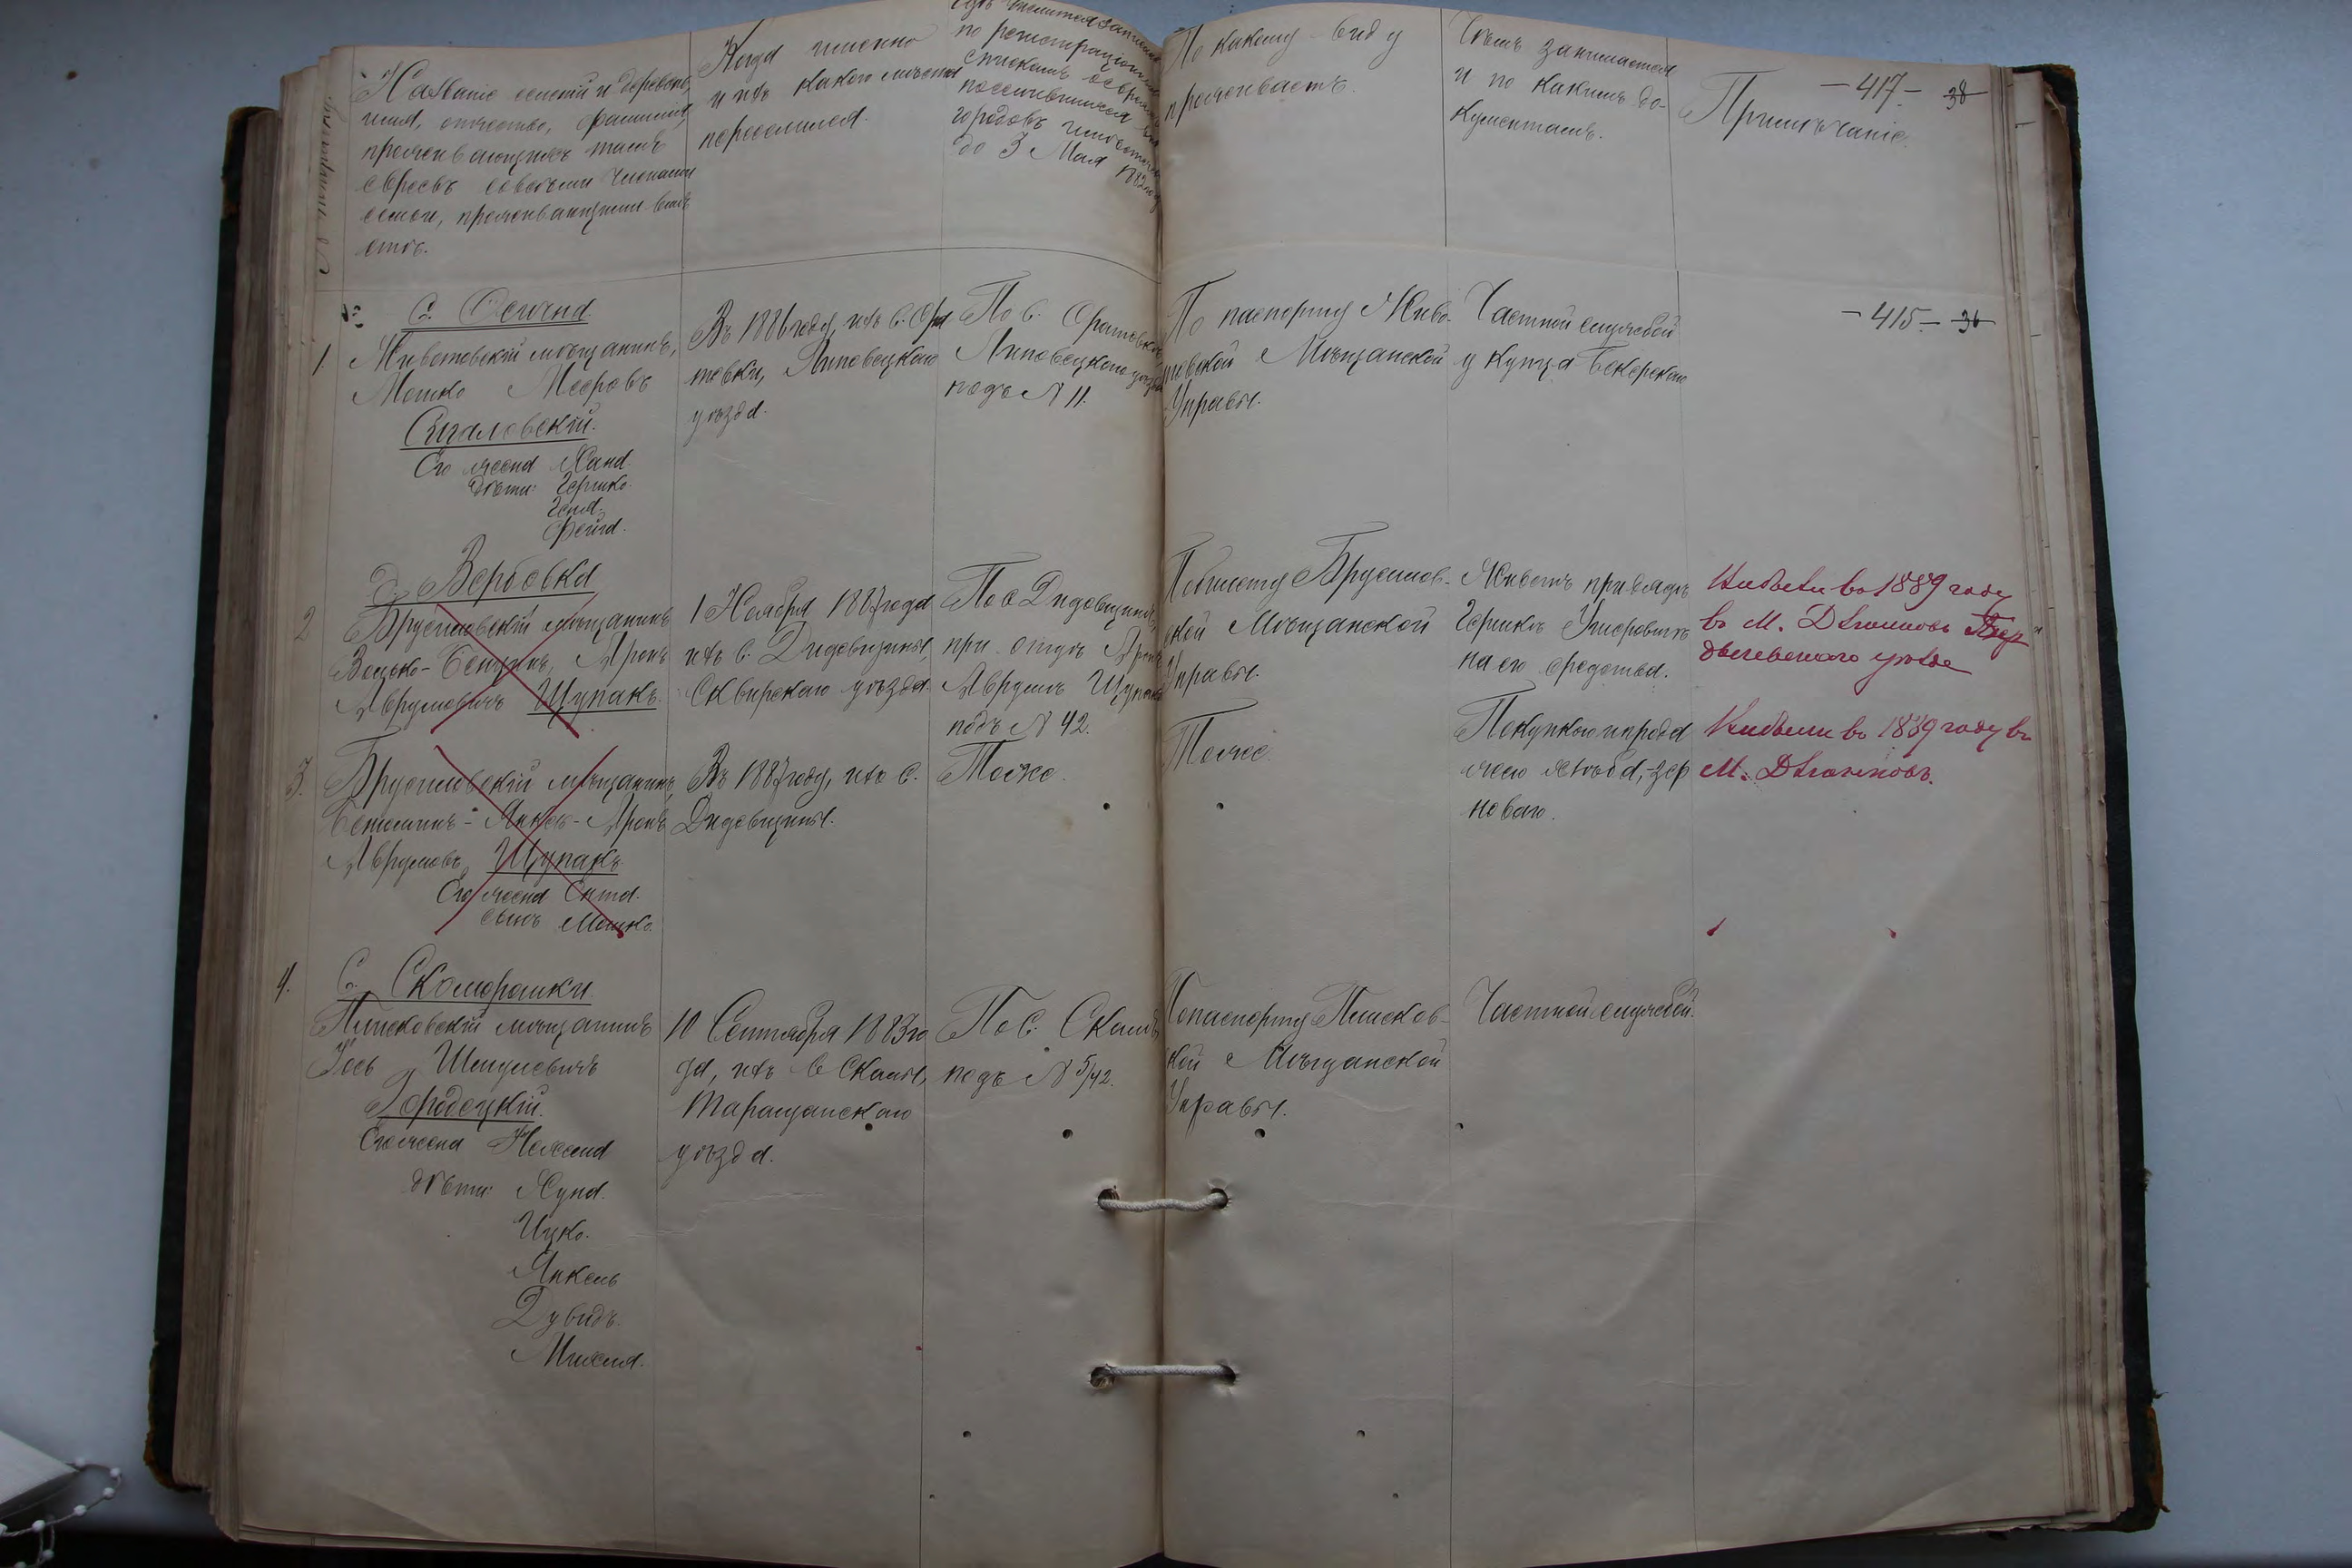 Названіе селеній и деревень,
имя, отчество, фамилія,
проживающихъ тамъ
евреевъ со всѣми членами
семьи, проживающими вмѣ
стѣ.
Когда именно
и изъ какого мѣста
переселился.
числится
по регистраціон
спискамъ
поселившихся
до 3 Мая 1882 году
По какому виду
проживаетъ.
Чѣмъ занимается
и по какимъ до-
кументамъ.
Примѣчаніе.
-417- 38
С. Осична.
1. Животовскій мѣщанинъ,
Мошко Мееровъ
Сигаловскій.
Его жена Хана.
дѣти: Гершко.
Геня.
Фейга.
Въ 1886 году, изъ с. Ора
товки, Липовецкаго
уѣзда.
По с. Оратовкѣ
Липовецкаго уѣзда
подъ № 11.
По паспорту Живо-
товской Мѣщанской
Управы.
Частной службой
у купца Бекерскаго
-415- 36
д. Вербовка
2 Брусиловскій мѣщанинъ
Аронъ
Аврумовичъ Щупакъ.
1 Ноября 1887 года
изъ с. Дидовщины,
Сквирскаго уѣзда.
По с. Дидовщинѣ,
при отцѣ Аронѣ
Аврумѣ Щупакѣ
подъ № 42.
По билету Брусилов-
ской Мѣщанской
Управы.
Живетъ при дядѣ
Гершкѣ
на его средства.
Выбыли въ 1889 году
въ М. Дзюньковъ Бер
дичевскаго уѣзда
3. Брусиловскій мѣщанинъ,
Беньминъ-Янкель-Аронъ
Аврумовъ Щупакъ.
Его жена Сита.
сынъ Мошко.
Въ 1887 году, изъ с.
Дидовщины.
Тоже.
Тоже.
Покупкою и прода
жею хлѣба, зер
новаго.
Выбыли въ 1889 году въ
М. Дзюньковъ.
4. С. Скоморошки.
Пятковскій мѣщанинъ
Іось Шмулевичъ
Городецкій.
Его жена Нехена
дѣти: Хуна.
Ицко.
Янкель
Дувидъ.
10 Сентября 1883 го
да, изъ с. Скалы,
Таращанскаго
уѣзда.
По с. Скалѣ
подъ № 5/42.
По паспорту Пятков-
ской Мѣщанской
Управы.
Частной службой.